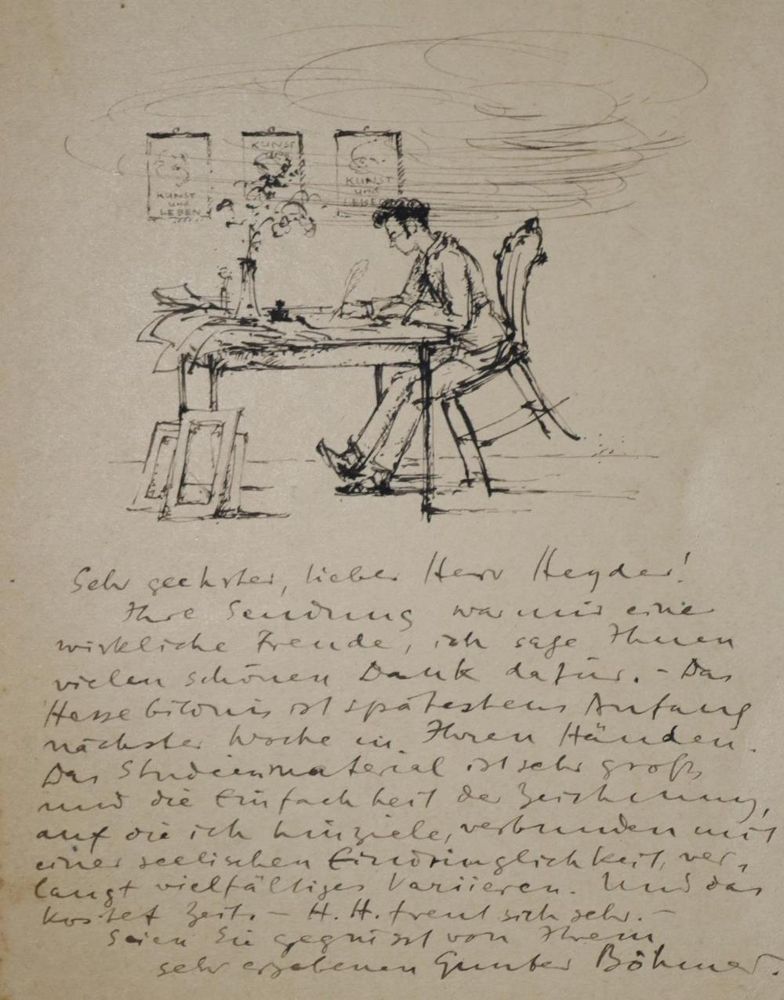 KUNST
UND
LEBEN
KUNST
KUNST
UND
LEBEN
Sehr geehrter, lieber Herr Heyder!
Ihre Sendung war mir eine
wirkliche Freude, ich sage Ihnen
vielen schönen Dank dafür. – Das
Hessebildnis ist spätestens Anfang
nächster Woche in Ihren Händen.
Das Studienmaterial ist sehr groß,
und die Einfachheit der Zeichnung,
auf die ich hinziele, verbunden mit
einer seelischen Eindringlichkeit, ver-
langt vielfältiges Variieren. Und das
kostet Zeit. – H. H. freut sich sehr. –
Seien Sie gegrüsst von Ihrem
sehr ergebenen Gunter Böhmer.